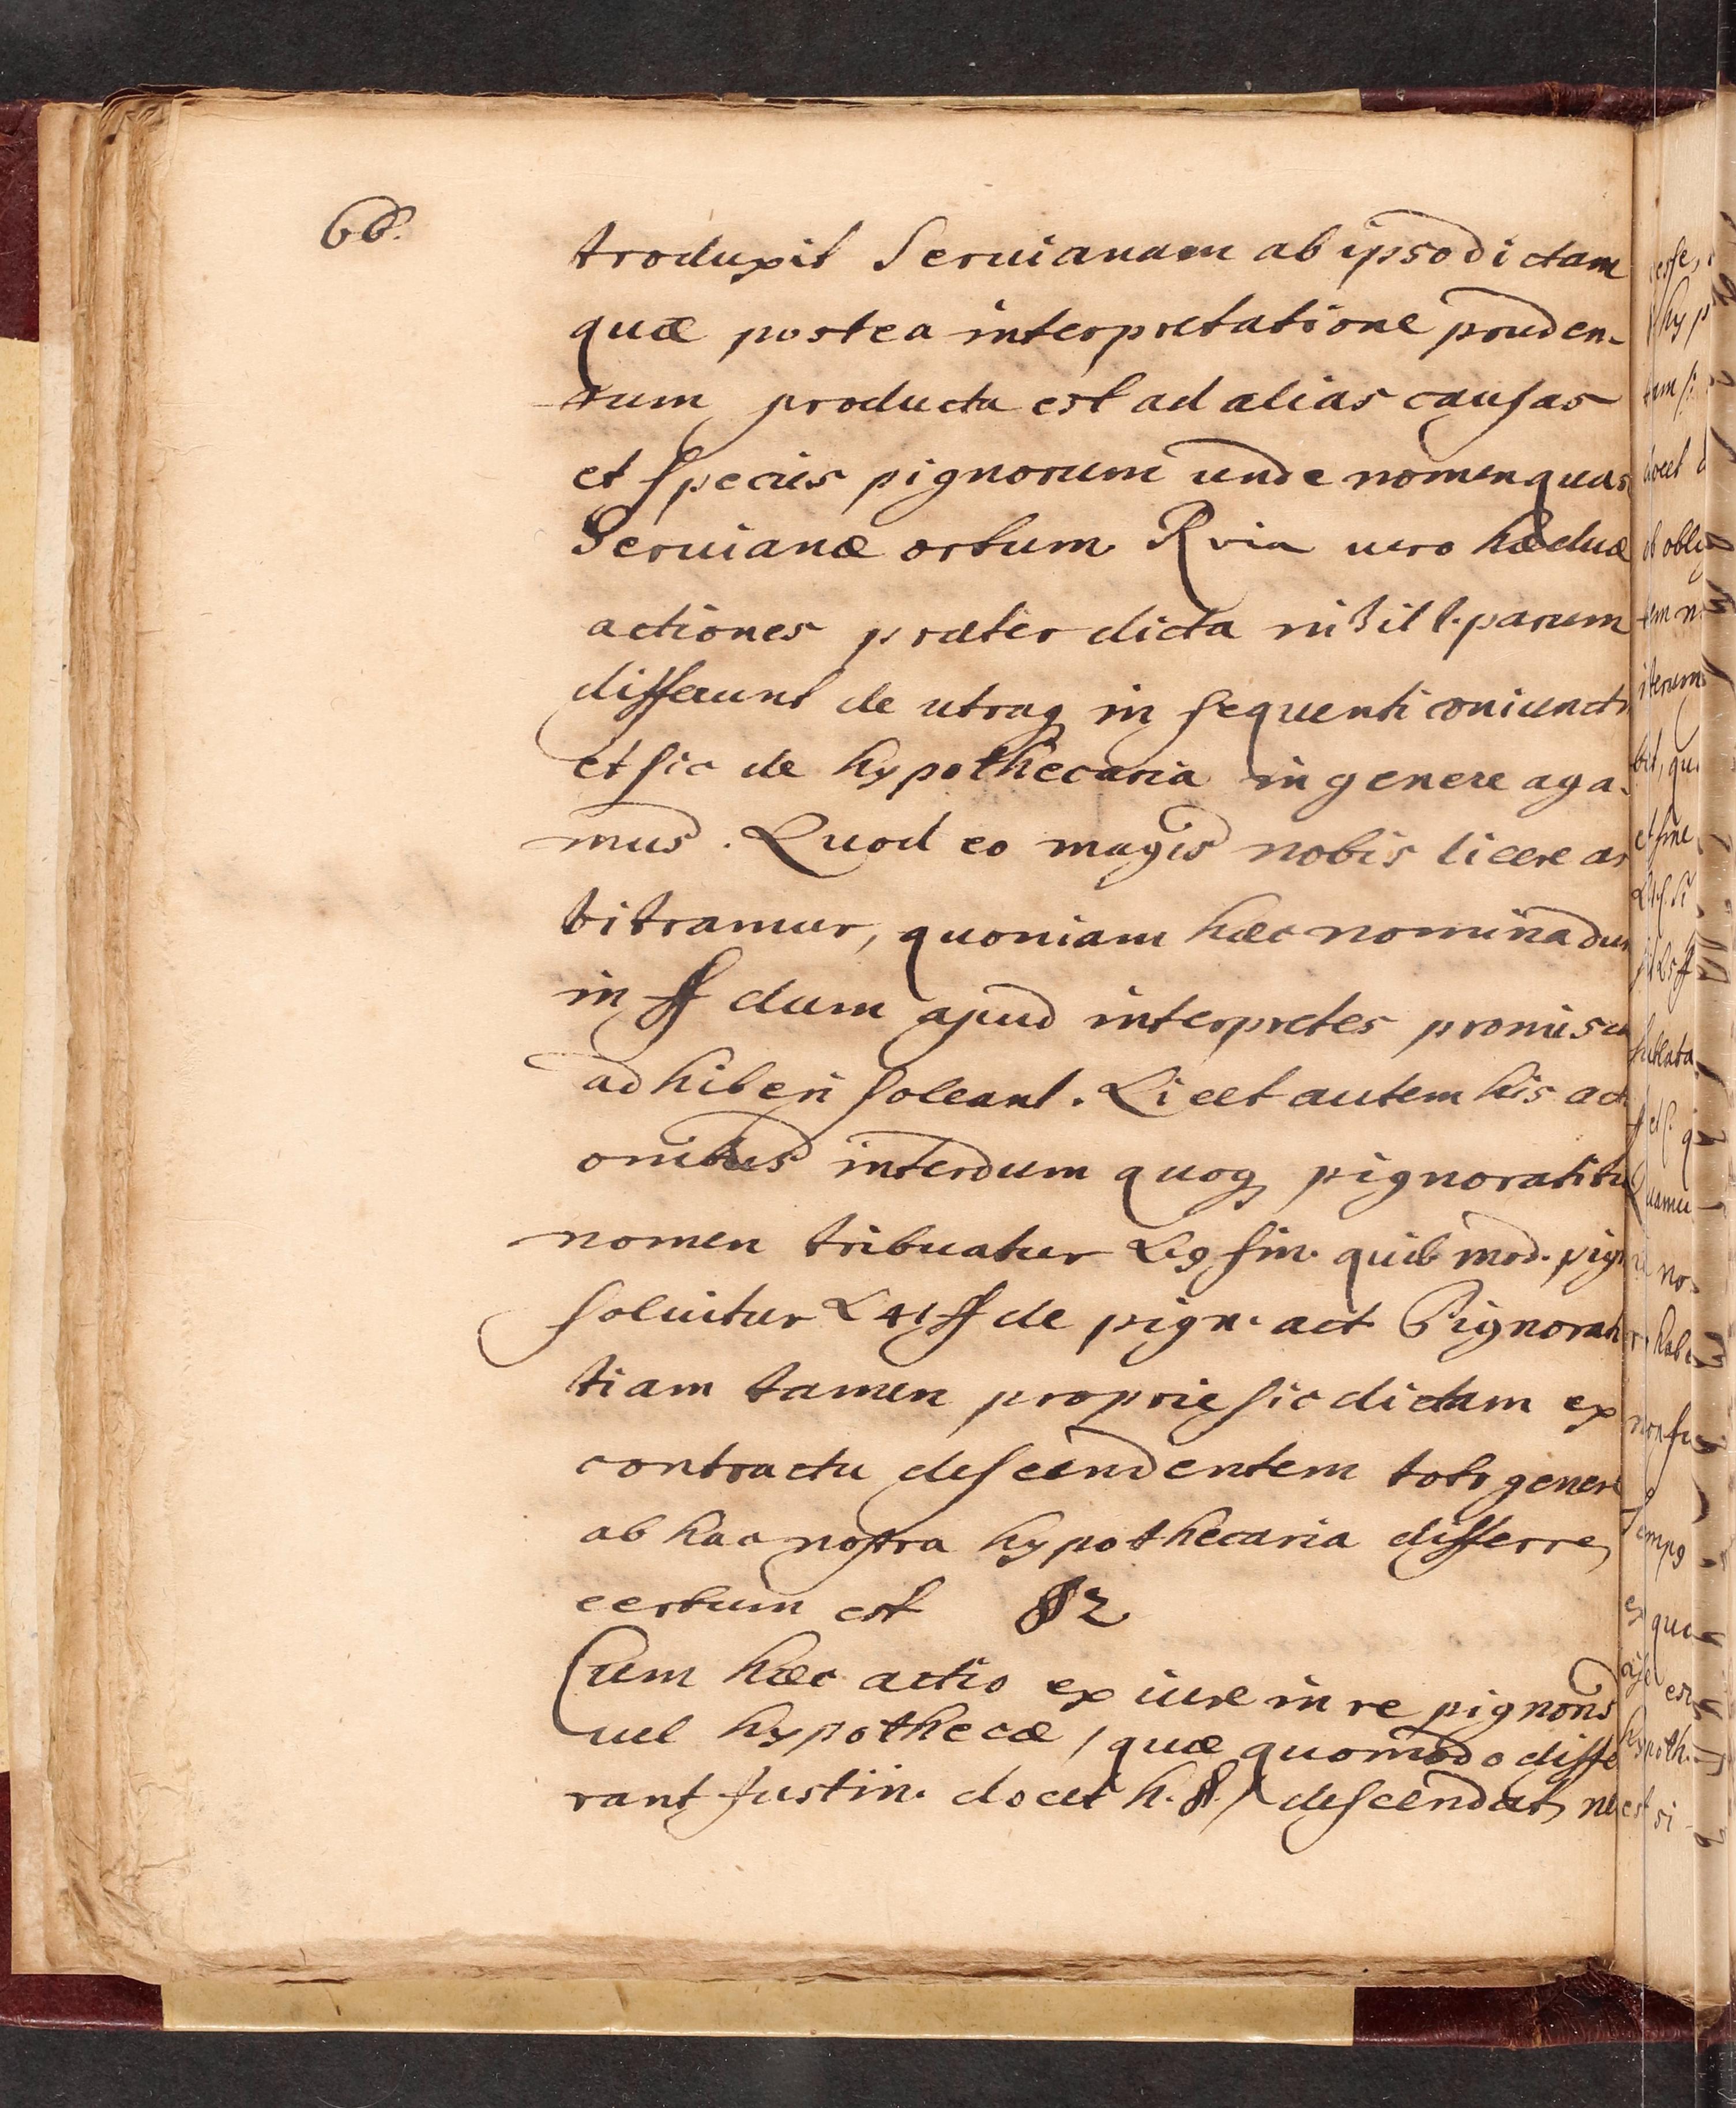 66.
troduxit Seruianam ab ipso dictam
quæ postea interpretatione pruden-
tum producta est ad alias causas
et species pignorum unde nomen quas
Seruianæ ortum. Quia uero hæ duæ
actiones præter dicta nihil l. parum
differunt de utraq in sequenti coniuncti
et sic de hypothecaria in genere aga-
mus. Quod eo magis nobis licere ar
bitramur, quoniam hæc nomina dum
in ff dum apud interpretes promiscu
adhiberi soleant. Licet autem his acti
onibus interdum quoq pignoratitiæ
nomen tribuatur L 9 fin. quib. mod. pign
soluitur L 41 ff de pign. act Pignorati
tiam tamen proprie sic dictam ex
contractu descendentem toto genere
ab hac nostra hypothecaria differre,
certum est § 2
Cum hæc actio ex iure in re pignoris
uel hypothecæ / quæ quomodo diffe
rant Justin. docet h. §. / descendat, ne